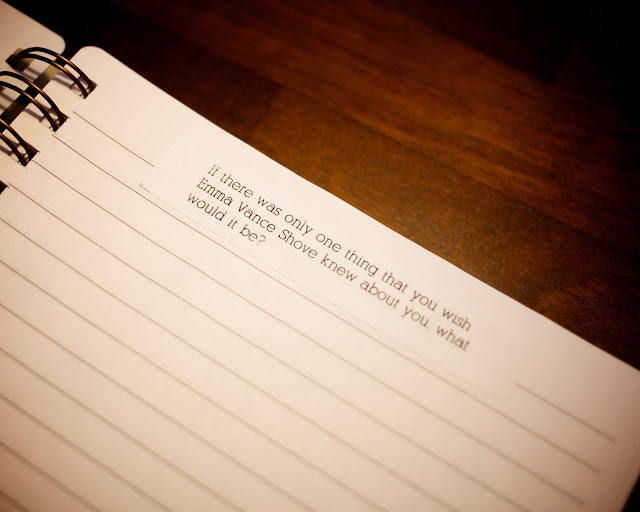 If there was only one thing that you wish
Emma Vance Shove knew about you, what
would it be?